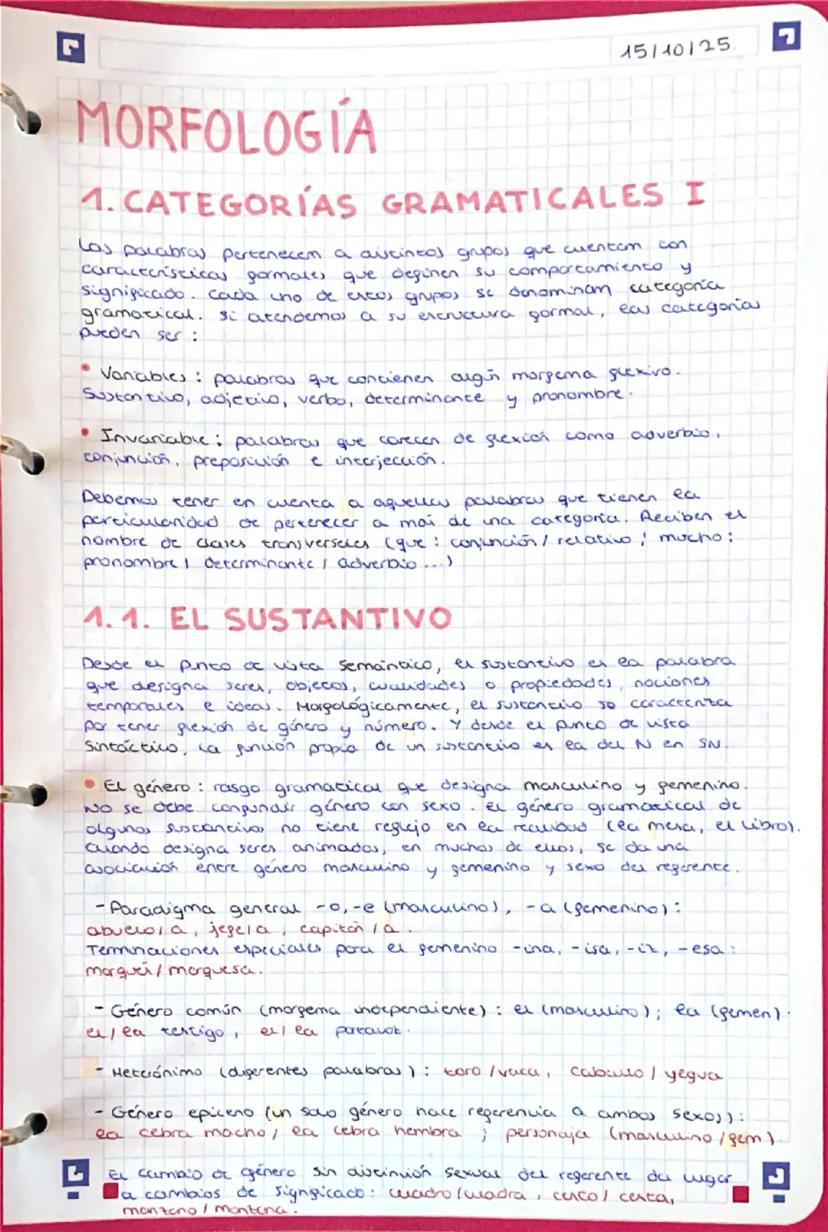 15/10/25
MORFOLOGÍA
1. CATEGORÍAS GRAMATICALES I
Las palabras pertenecen a distintos grupos que cuentan con
características formales que definen su comportamiento y
significado. Cada uno de estos grupos se denominan categoría
gramatical. Si atendemos a su estructura formal, las categorías
pueden ser:
• Variables: palabras que contienen algún morfema flexivo.
Sustantivo, adjetivo, verbo, determinante y pronombre.
• Invariable: palabras que carecen de flexión como adverbio,
conjunción, preposición e interjección.
Debemos tener en cuenta a aquellas palabras que tienen la
particularidad de pertenecer a más de una categoría. Reciben el
nombre de clases transversales (que: conjunción/relativo; mucho:
pronombre/determinante/adverbio...)
1.1. EL SUSTANTIVO
Desde el punto de vista semántico, el sustantivo es la palabra
que designa seres, objetos, cualidades o propiedades, nociones
temporales e ideas. Morfológicamente, el sustantivo se caracteriza
por tener flexión de género y número. Y desde el punto de vista
sintáctico, la función propia de un sustantivo es la del N en SN.
• El género: rasgo gramatical que designa masculino y femenino.
No se debe confundir género con sexo. El género gramatical de
algunos sustantivos no tiene reflejo en la realidad (la mesa, el libro).
Cuando designa seres animados, en muchos de ellos, se da una
asociación entre género masculino y femenino y sexo del referente.
- Paradigma general -o, -e (masculino), -a (femenino):
abuelo/a, jefe/a, capitán/a.
Terminaciones especiales para el femenino -ina, -isa, -iz, -esa:
marqués/marquesa.
- Género común (morfema independiente): el (masculino); la (femen).
el/la testigo, el/la portavoz.
- Heterónimo (diferentes palabras): toro/vaca, caballo/yegua
- Género epiceno (un solo género hace referencia a ambos sexos):
la cebra macho/la cebra hembra; personaje (masculino/fem).
El cambio de género sin distinción sexual del referente da lugar
a cambios de significado: cuadro/cuadra, cesto/cesta,
manzano/manzana.